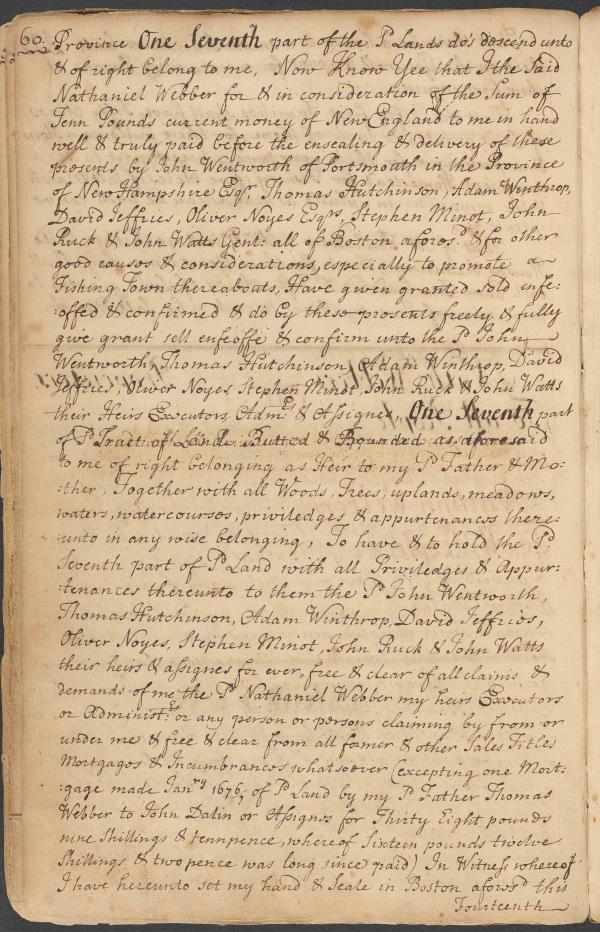 60.
Province One Seventh part of the Sd Lands do's descend unto
& of right belong to me, Now Know Yee that I the Said
Nathaniel Webber for & in consideration of the Sum of
Tenn Pounds current money of New England to me in hand
well & truly paid before the ensealing & delivery of these
presents by John Wentworth of Portsmouth in the Province
of New Hampshire Esqr, Thomas Hutchinson, Adam Winthrop,
David Jeffries, Oliver Noyes Esqrs, Stephen Minot, John
Ruck & John Watts Gent: all of Boston afores.d & for other
good causes & considerations, especially to promote a
Fishing Town thereabouts, Have given granted sold enfe:
:offed & confirmed & do by these presents freely & fully
give grant sell enfeoffe & confirm unto the Sd John
Wentworth, Thomas Hutchinson, Adam Winthrop, David
Jeffries, Oliver Noyes, Stephen Minot, John Ruck & John Watts
their Heirs Executors Admrs & Assignes, One Seventh part
of Sd Tract of Land Butted & Bounded as aforesaid
to me of right belonging as Heir to my Sd Father & Mo:
:ther, Together with all Woods, Trees, uplands, meadows,
waters, watercourses, priviledges, & appurtenances there:
:unto in any wise belonging, To have & to hold the Sd
Seventh part of Sd Land with all Priviledges & Appur:
:tenances thereunto to them the Sd John Wentworth,
Thomas Hutchinson, Adam Winthrop, David Jeffries,
Oliver Noyes, Stephen Minot, John Ruck & John Watts
their heirs & assignes for ever, free & clear of all claims &
demands of me the Sd Nathaniel Webber my heirs Executors
or Administ:rs or any person or persons claiming by from or
under me & free & clear from all former & other Sales Titles
Mortgages & Incumbrances whatsoever (excepting one Mort:
:gage made Janry 1676, of Sd Land by my Sd Father Thomas
Webber to John Dalin or Assignes for Thirty Eight pounds
nine Shillings & tennpence, whereof Sixteen pounds twelve
Shillings & two pence was long since paid) In Witness whereof
I have hereunto set my hand & Seale in Boston aforesd this
Fourteenth